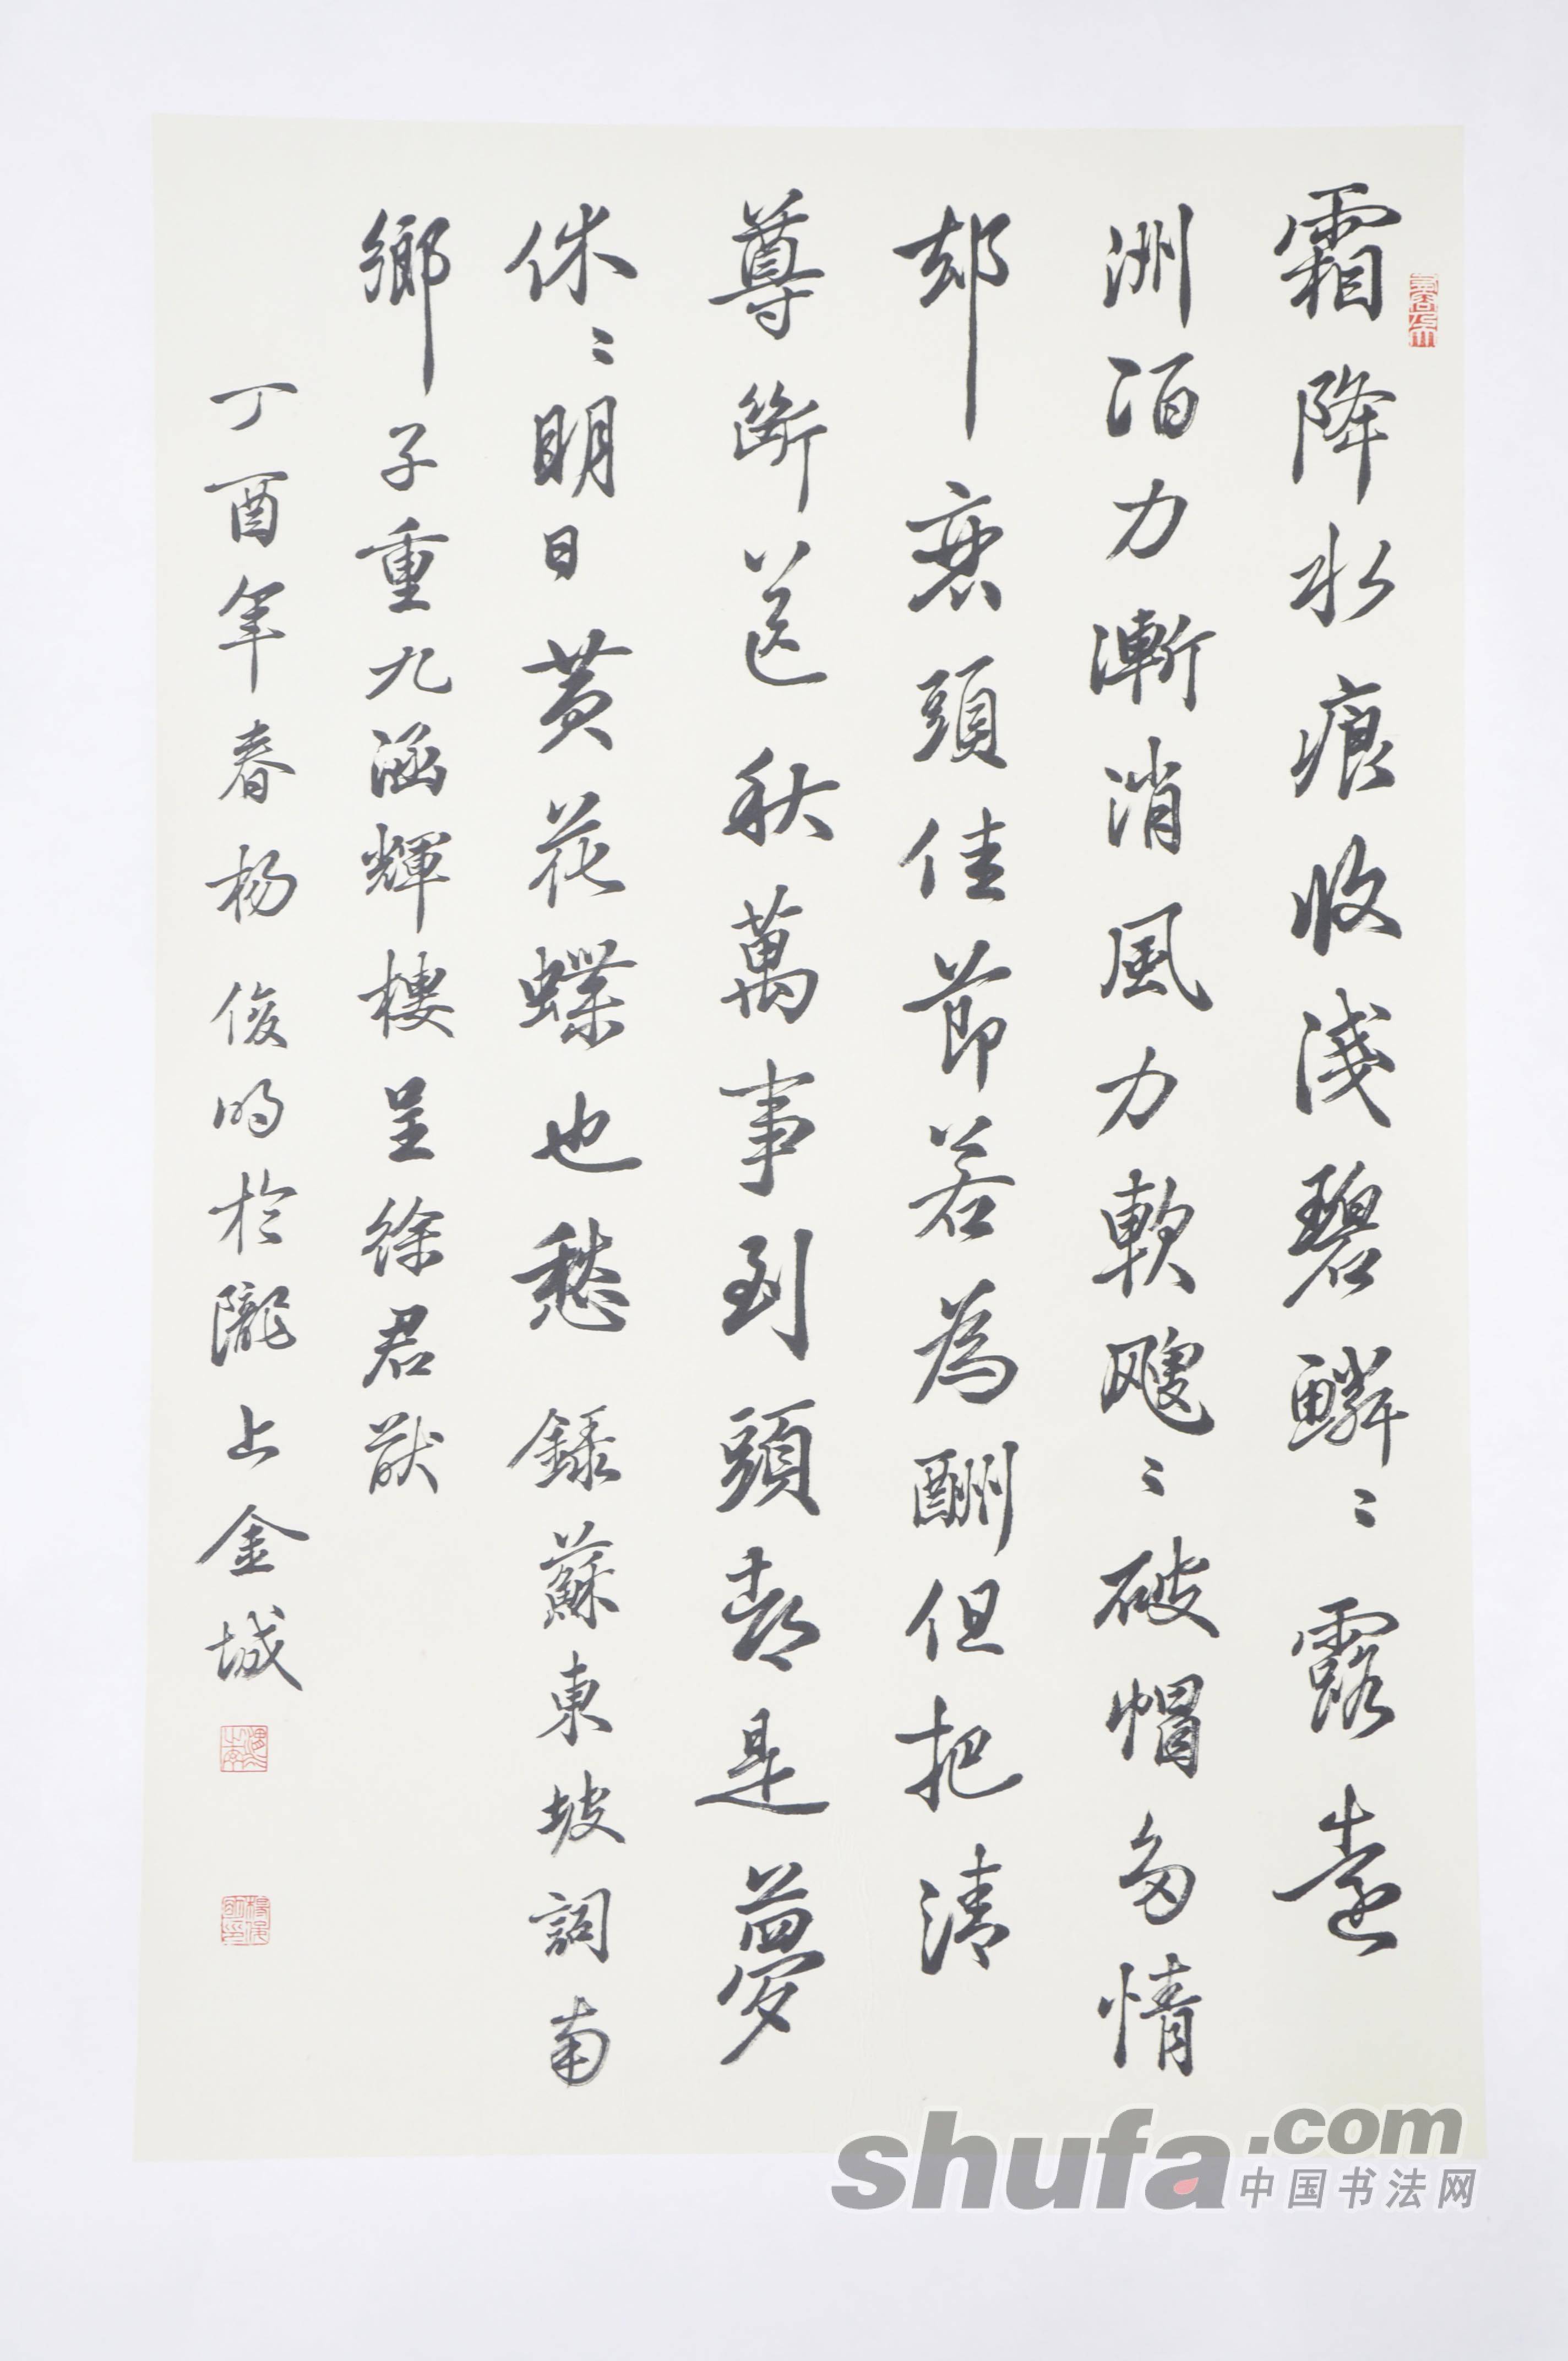 霜降水痕收淺碧鱗〻露遠
洲酒力漸消風力軟颼〻破帽多情
却衰頭佳節若為酬但把清
尊斷送秋萬事到頭都是夢
休〻明日黄花蝶也愁錄蘇東坡詞南
鄉子重九涵輝樓呈徐君猷
丁酉年春杨俊明於隴上金城
shufa.com
中国书法网